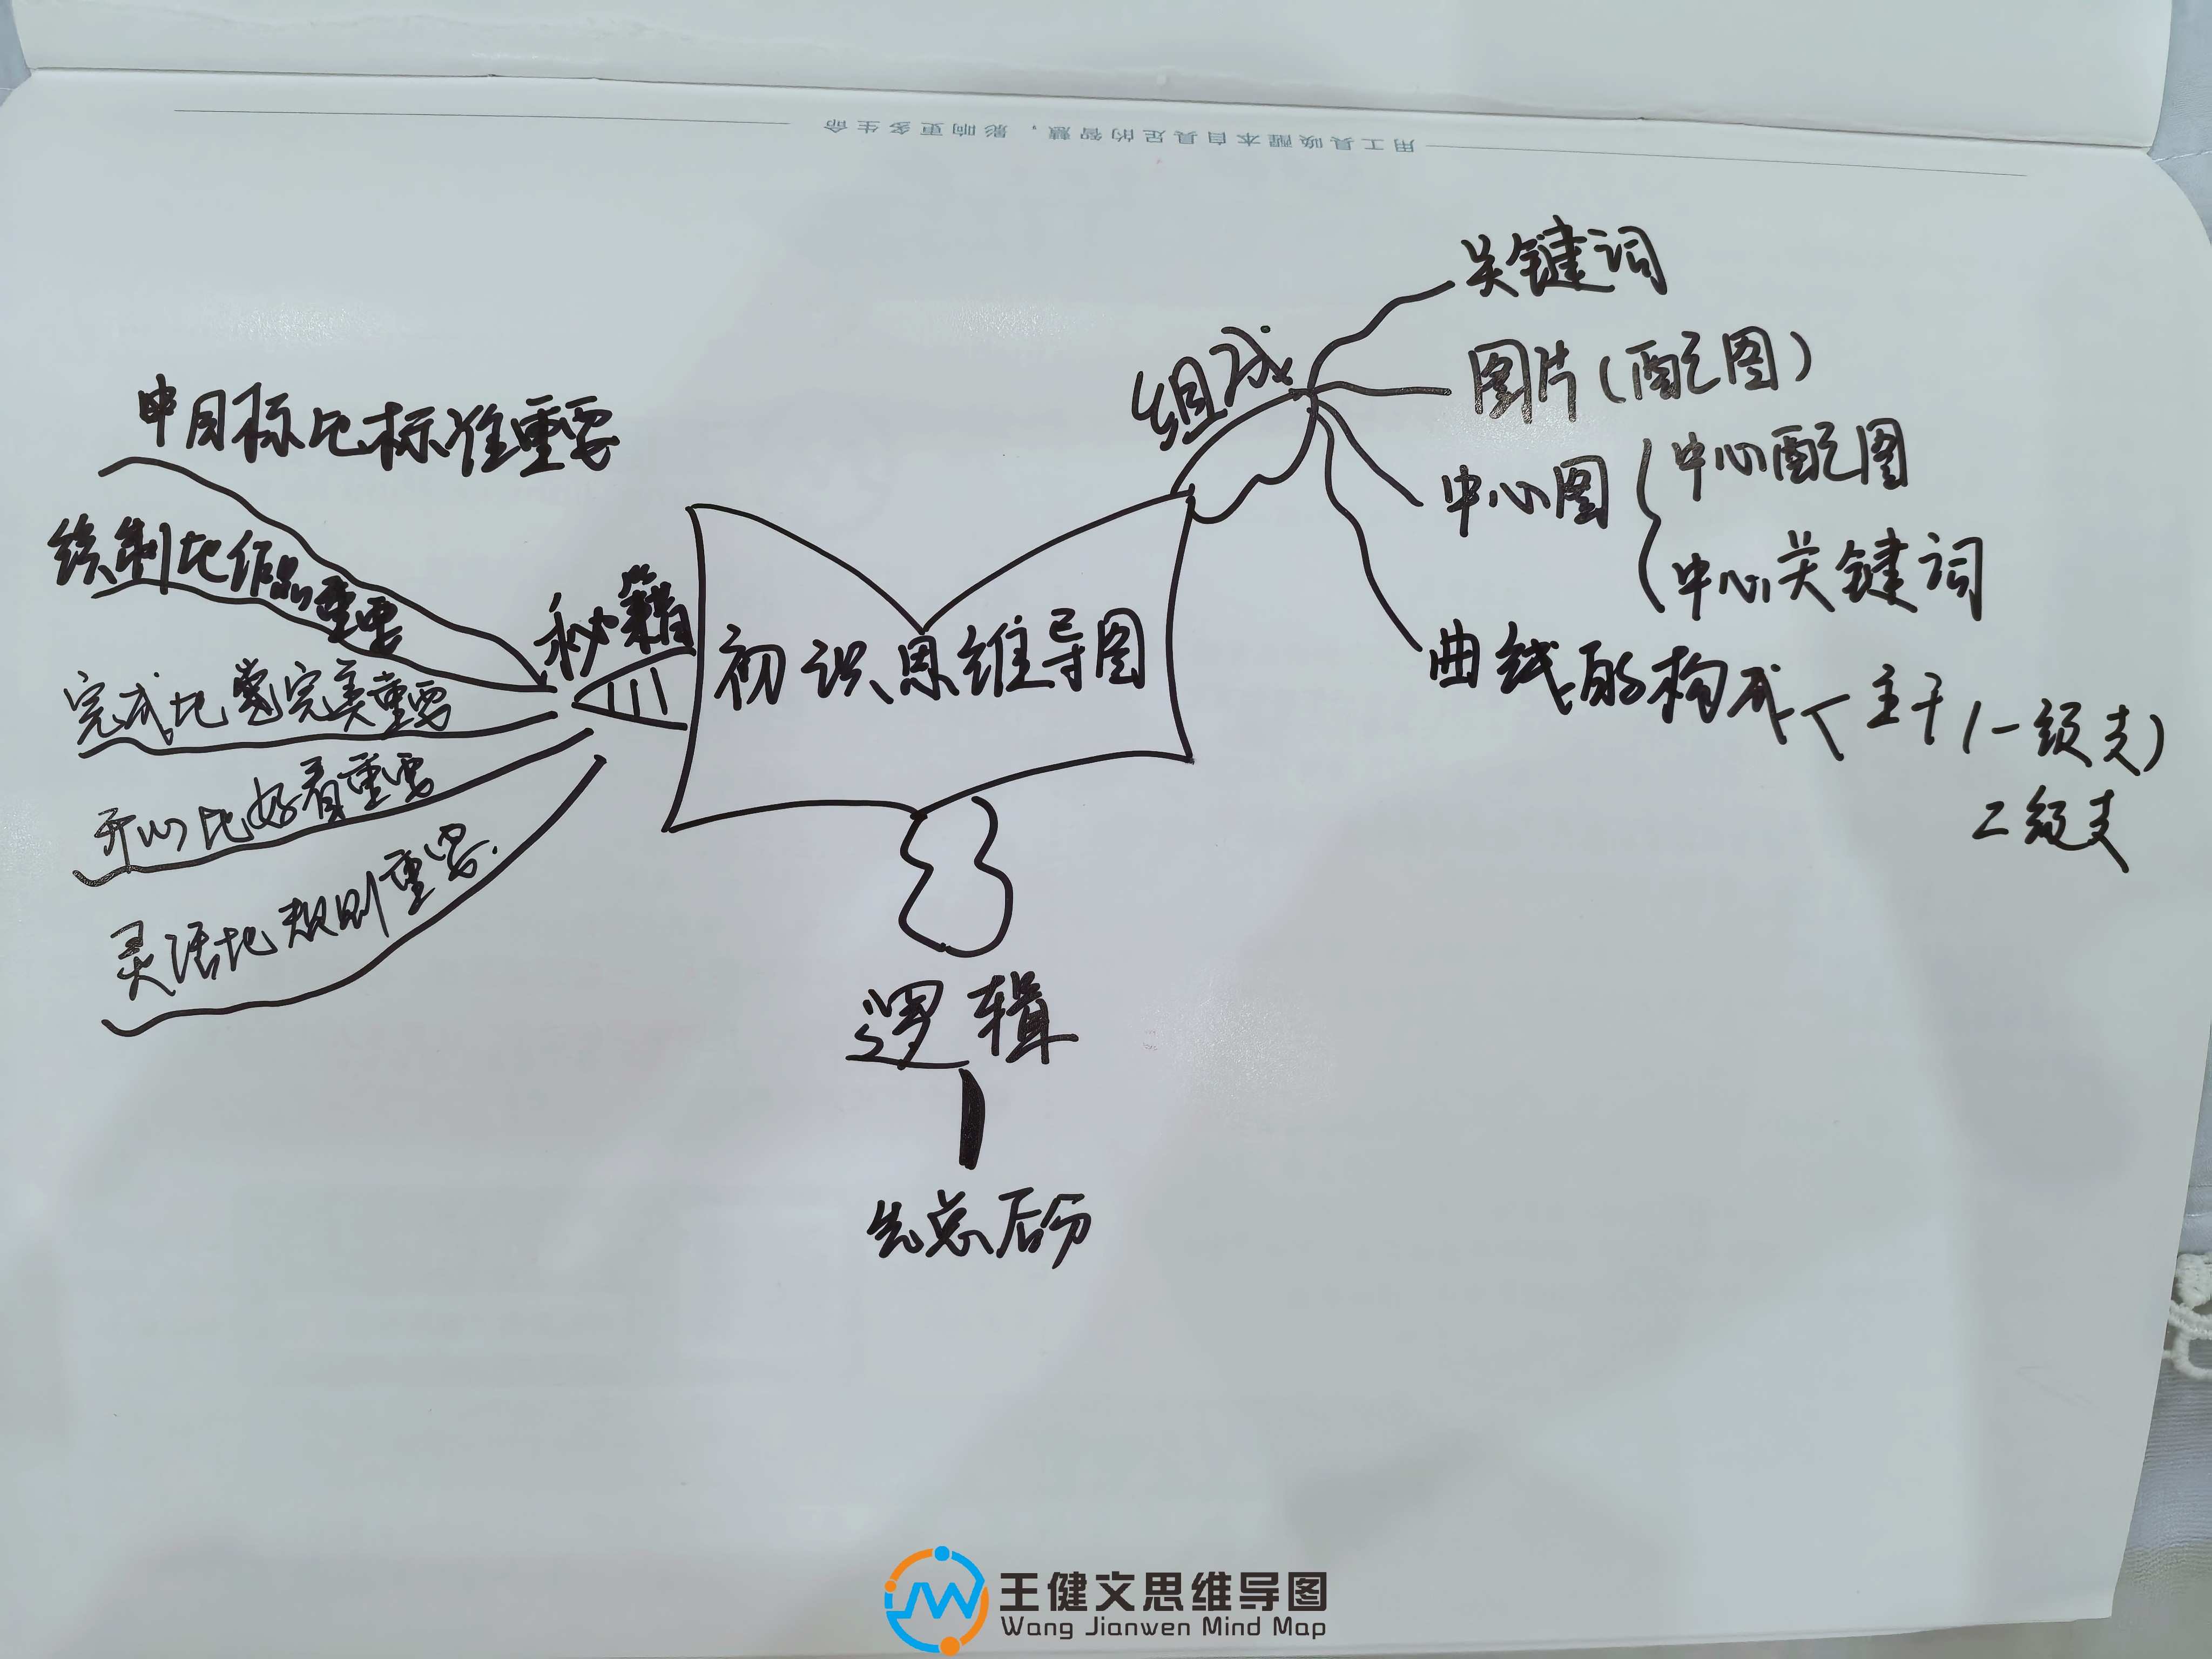 用工具唤醒本自具足的智慧，影响更多生命
初识思维导图
组成
关键词
图片(配图)
中心图
中心配图
中心关键词
曲线的构成
主干(一级支)
二级支
逻辑
先总后分
秘籍
目标比标准重要
绘制比作品重要
完成比完美重要
开心比好看重要
灵活比规则重要.
王健文思维导图
Wang Jianwen Mind Map